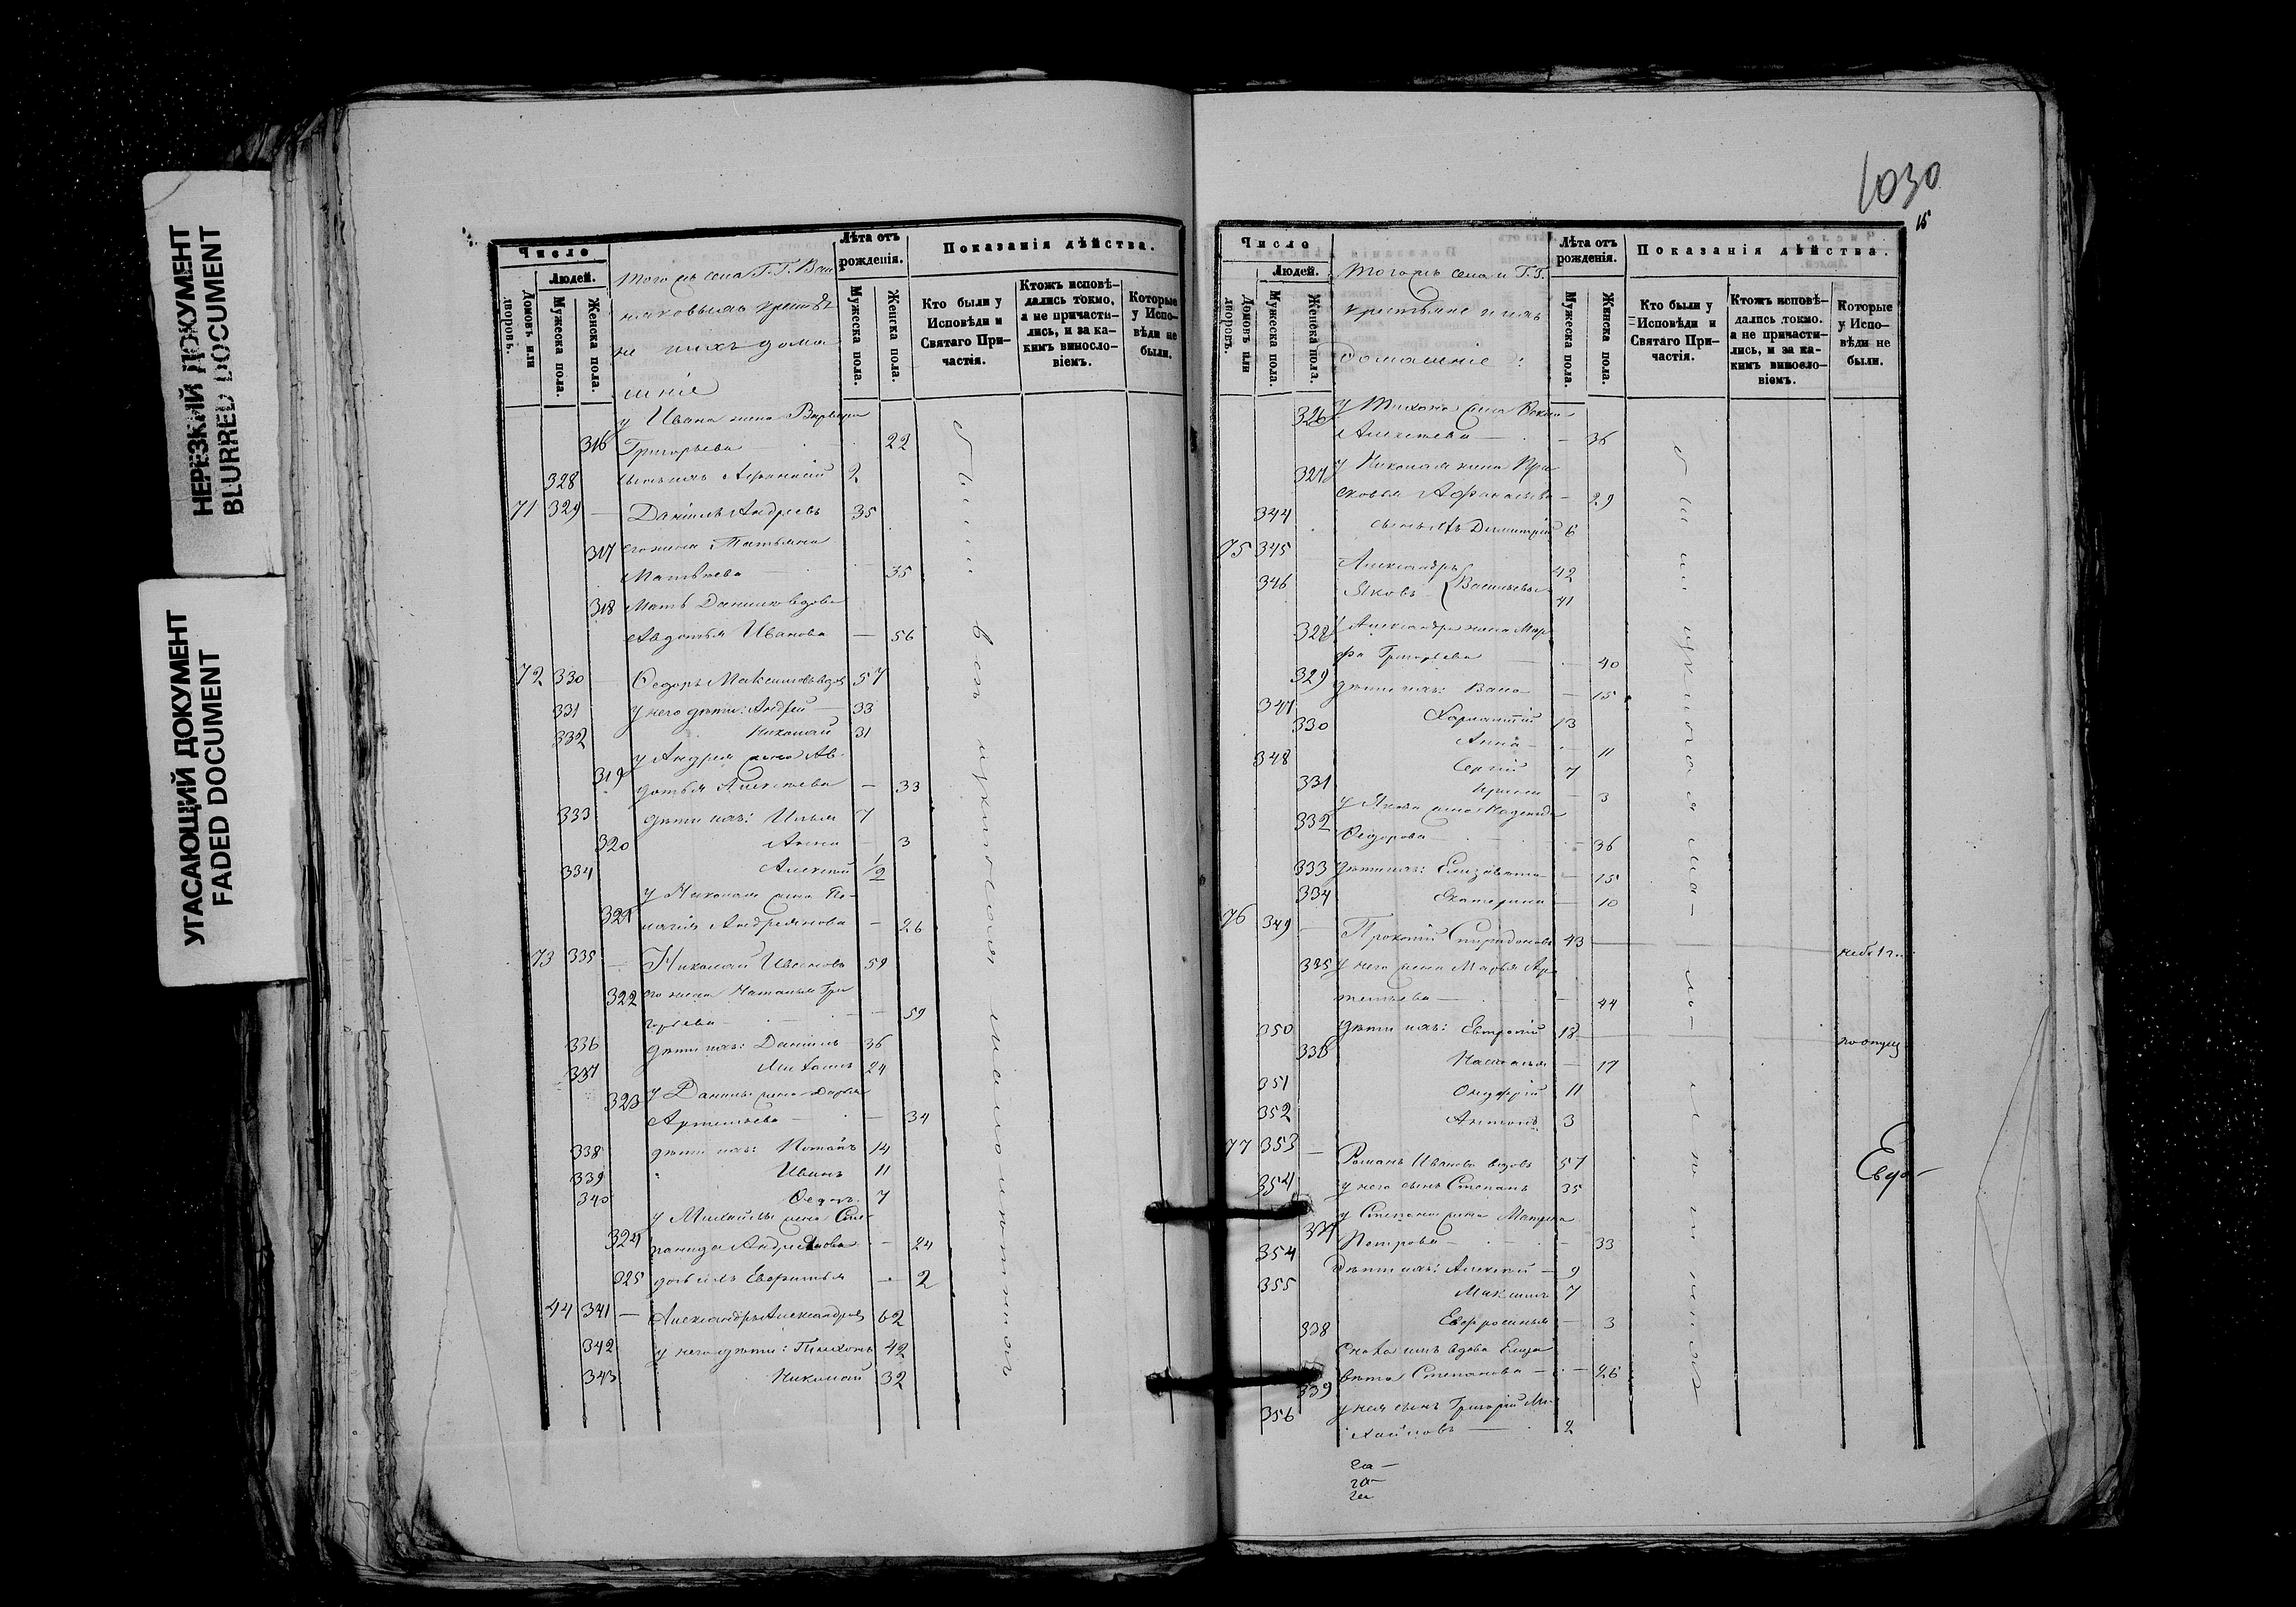 НЕРЕЗКИЙ ДОКУМЕНТ
BLURRED DOCUMENT
УГАСАЮЩИЙ ДОКУМЕНТ
FADED DOCUMENT
Число
Людей.
Домовъ или дворовъ.
Мужеска пола.
Женска пола.
Тогожъ села Г. Г.
домашніе
Лѣта отъ рожденія.
Мужеска пола.
Женска пола.
Показанія дѣйства.
Кто были у Исповѣди и Святаго Причастія.
Ктожъ исповѣдались токмо, а не причастились, и за какимъ винословіемъ.
Которые у Исповѣди не были.
у Ивана жена Варвара
316 Григорьева 22
328 сынъ ихъ 2
71 329 — Даніилъ Андреевъ 35
317 его жена Татьяна
Матвѣева 35
318 Мать Даниила вдова
Авдотья Иванова — 56
72 330 Ѳедоръ Максимовъ вдов 57
331 У него дѣти: Андрей 33
332 Николай 31
319 у Андрея жена Ав-
дотья Алексѣева — 33
333 дѣти ихъ: Илья 7
320 Анна — 3
334 Алексѣй 1/2
321 У Николая жена Пе-
лагія Андреянова — 26
73 335 — Николай Ивановъ 59
322 его жена Наталья Гри
горьева — 59
336 дѣти ихъ: Даніилъ 36
337 Михаилъ 24
323 у Данилы жена Дарья
Артемьева — 34
338 дѣти ихъ: Потапъ 14
339 Иванъ 11
340 Ѳедоръ 7
324 у Михайлы жена Сте-
панида Андреянова — 24
325 дочь ихъ — 2
44 341 — Александръ Александровъ 62
342 у него дѣти: Тихонъ 42
343 Николай 32
были вси
1030
15
Число
Людей.
Домовъ или дворовъ.
Мужеска пола.
Женска пола.
Тогожъ села и Г. Г.
крестьяне и ихъ
домашніе:
Лѣта отъ рожденія.
Мужеска пола.
Жинска пола.
Показанія дѣйства.
Кто были у Исповѣди и Святаго Причастія.
Ктожъ исповѣдались токмо. а не причастились, и за какимъ винословіемъ.
Которые у Исповѣди не были.
326 у Тихона жена
Алексѣева — 36
327 у Николая жена Пра
сковья Афанасьева — 29
344 сынъ ихъ Димитрій 6
75 345 Александръ 42
346 Яковъ } Васильевы 41
328 у Александра жена Мар
фа Григорьева 40
329 дѣти ихъ: — 15
347 Харлампій 13
330 Анна — 11
348 Сергій 7
331 — 3
332 у Якова жена Надежда
Ѳедорова — 36
333 дѣти ихъ: Елизавета — 15
334 Екатерина — 10
76 349 — Прокопій Спиридоновъ 43 неб. 1 г.
335 у него жена Марья Ар
темьева — 44
350 дѣти ихъ: Евтропій 18 по опущ
336 Наталья — 17
351 Онуфрій 11
352 Антонъ 3
77 353 — Романъ Ивановъ вдовъ 57
354 у него сынъ Степанъ 35
337 у Степана жена Матрена
Петрова — 33
354 дѣти ихъ: Алексѣй — 9
355 Максимъ 7
338 Евфросинья — 3
сноха имъ вдова Елиза
339 вета Степанова — 26
356 у нея сынъ Григорій Ми-
хайловъ — 2
Евдо-